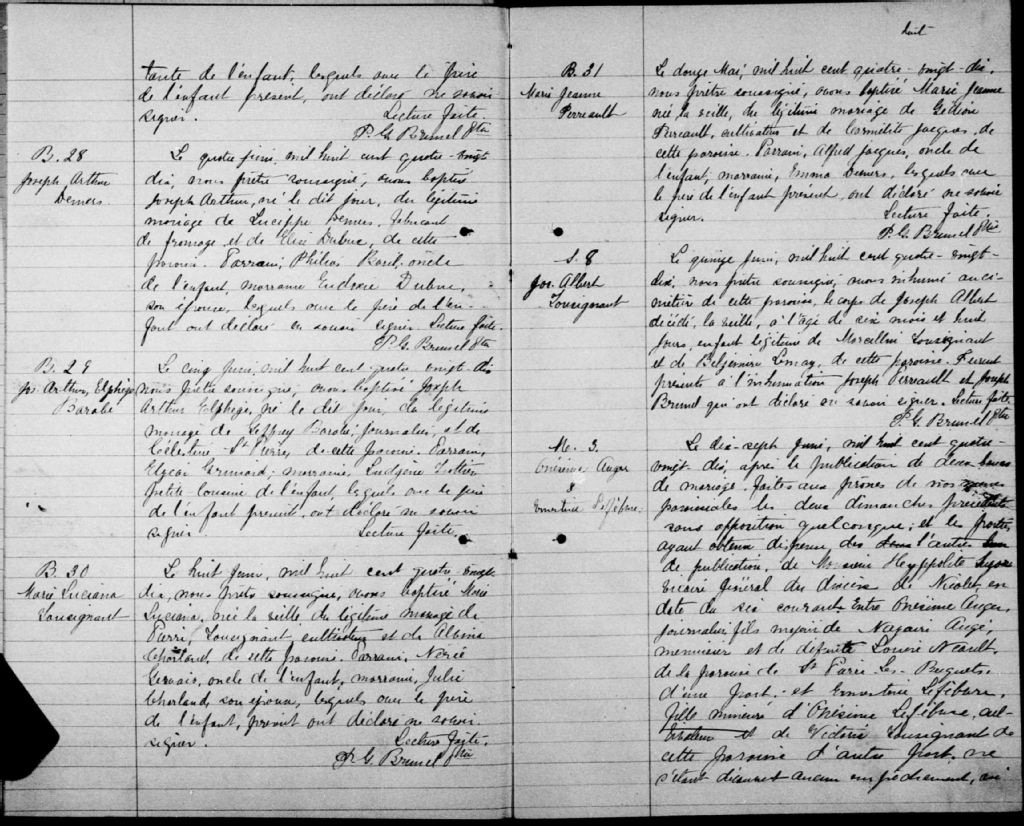 tante de l'enfant, lesquels avec le père
de l'enfant présent, ont déclaré ne savoir
signer.
Lecture faite.
P. G. Brunel Ptre
B. 28
Joseph Arthur
Demers
Le quatre juin, mil huit cent quatre-vingt
dix, nous prêtre soussigné, avons baptisé
Joseph Arthur, né le dit jour, du légitime
mariage de Demers, fabricant
de fromage et de Elise Dubuc, de cette
paroisse. Parrain, Philias Baril, oncle
de l'enfant, marraine Eudoxie Dubuc,
son épouse, lesquels avec le père de l'en-
fant ont déclaré en savoir signer. Lecture faite.
P. G. Brunel Ptre
B. 29
Jos. Arthur, Elphège
Barabé
Le cinq juin, mil huit cent quatre-vingt-dix
nous prêtre soussigné, avons baptisé Joseph
Arthur Elphège, né le dit jour, du légitime
mariage de Barabé journalier, et de
Célestine St Pierre, de cette paroisse. Parrain,
Elzéar Grimard, marraine,
petite-cousine de l'enfant, lesquels avec le père
de l'enfant présent, ont déclaré ne savoir
signer.
Lecture faite.
B. 30
Marie Luciana
Tousignant
Le huit juin, mil huit cent quatre-vingt
dix, nous prêtre soussigné, avons baptisé Marie
Luciana, née la veille, du légitime mariage de
Pierre Tousignant, cultivateur et de Albina
Charland, de cette paroisse. Parrain, Nérée
Gervais, oncle de l'enfant, marraine, Julie
Charland, son épouse, lesquels avec le père
de l'enfant, présent ont déclaré ne savoir
signer.
Lecture faite.
P. G. Brunel Ptre
huit
B. 31
Marie Jeanne
Perreault
Le douze Mai, mil huit cent quatre-vingt-dix,
nous prêtre soussigné, avons baptisé Marie Jeanne
née la veille, du légitime mariage de Gédéon
Perreault, cultivateur et de Jacques, de
cette paroisse. Parrain, Alfred Jacques, oncle de
l'enfant, marraine, Emma Demers, lesquels avec
le père de l'enfant présent, ont déclaré ne savoir
signer.
Lecture faite.
P. G. Brunel Ptre
S. 8
Jos. Albert
Tousignant
Le quinze juin, mil huit cent quatre-vingt-
dix, nous prêtre soussigné, avons inhumé au ci-
metière de cette paroisse, le corps de Joseph Albert
décédé, la veille, à l'âge de six mois et huit
jours, enfant légitime de Marcellin Tousignant
et de Lemay, de cette paroisse. Furent
présents à l'inhumation Joseph Perreault et Joseph
Brunel qui ont déclaré savoir signer. Lecture faite
P. G. Brunel Ptre
M. 3.
Onésime Auger
&
Ernestine Lefebvre
Le dix-sept juin, mil huit cent quatre-
vingt-dix, après la publication de deux bans
de mariage, faites aux prônes de nos messes
paroissiales les deux dimanches précédents
sans opposition quelconque; et les parties
ayant obtenu dispense des l'autre ban
de publication, de Monsieur Hyppolite
Vicaire général du diocèse de Nicolet, en
date du six courant. Entre Onésime Auger,
journalier, fils majeur de Nazaire Augé,
menuisier et de défunte Louise Neault,
de la paroisse de St Pierre Les Becquets,
d'une part, et Ernestine Lefebvre,
fille mineure d'Onésime Lefebvre, cul-
tivateur et de Victoria Tousignant de
cette paroisse d'autre part, ne
s'étant découvert aucun empêchement,